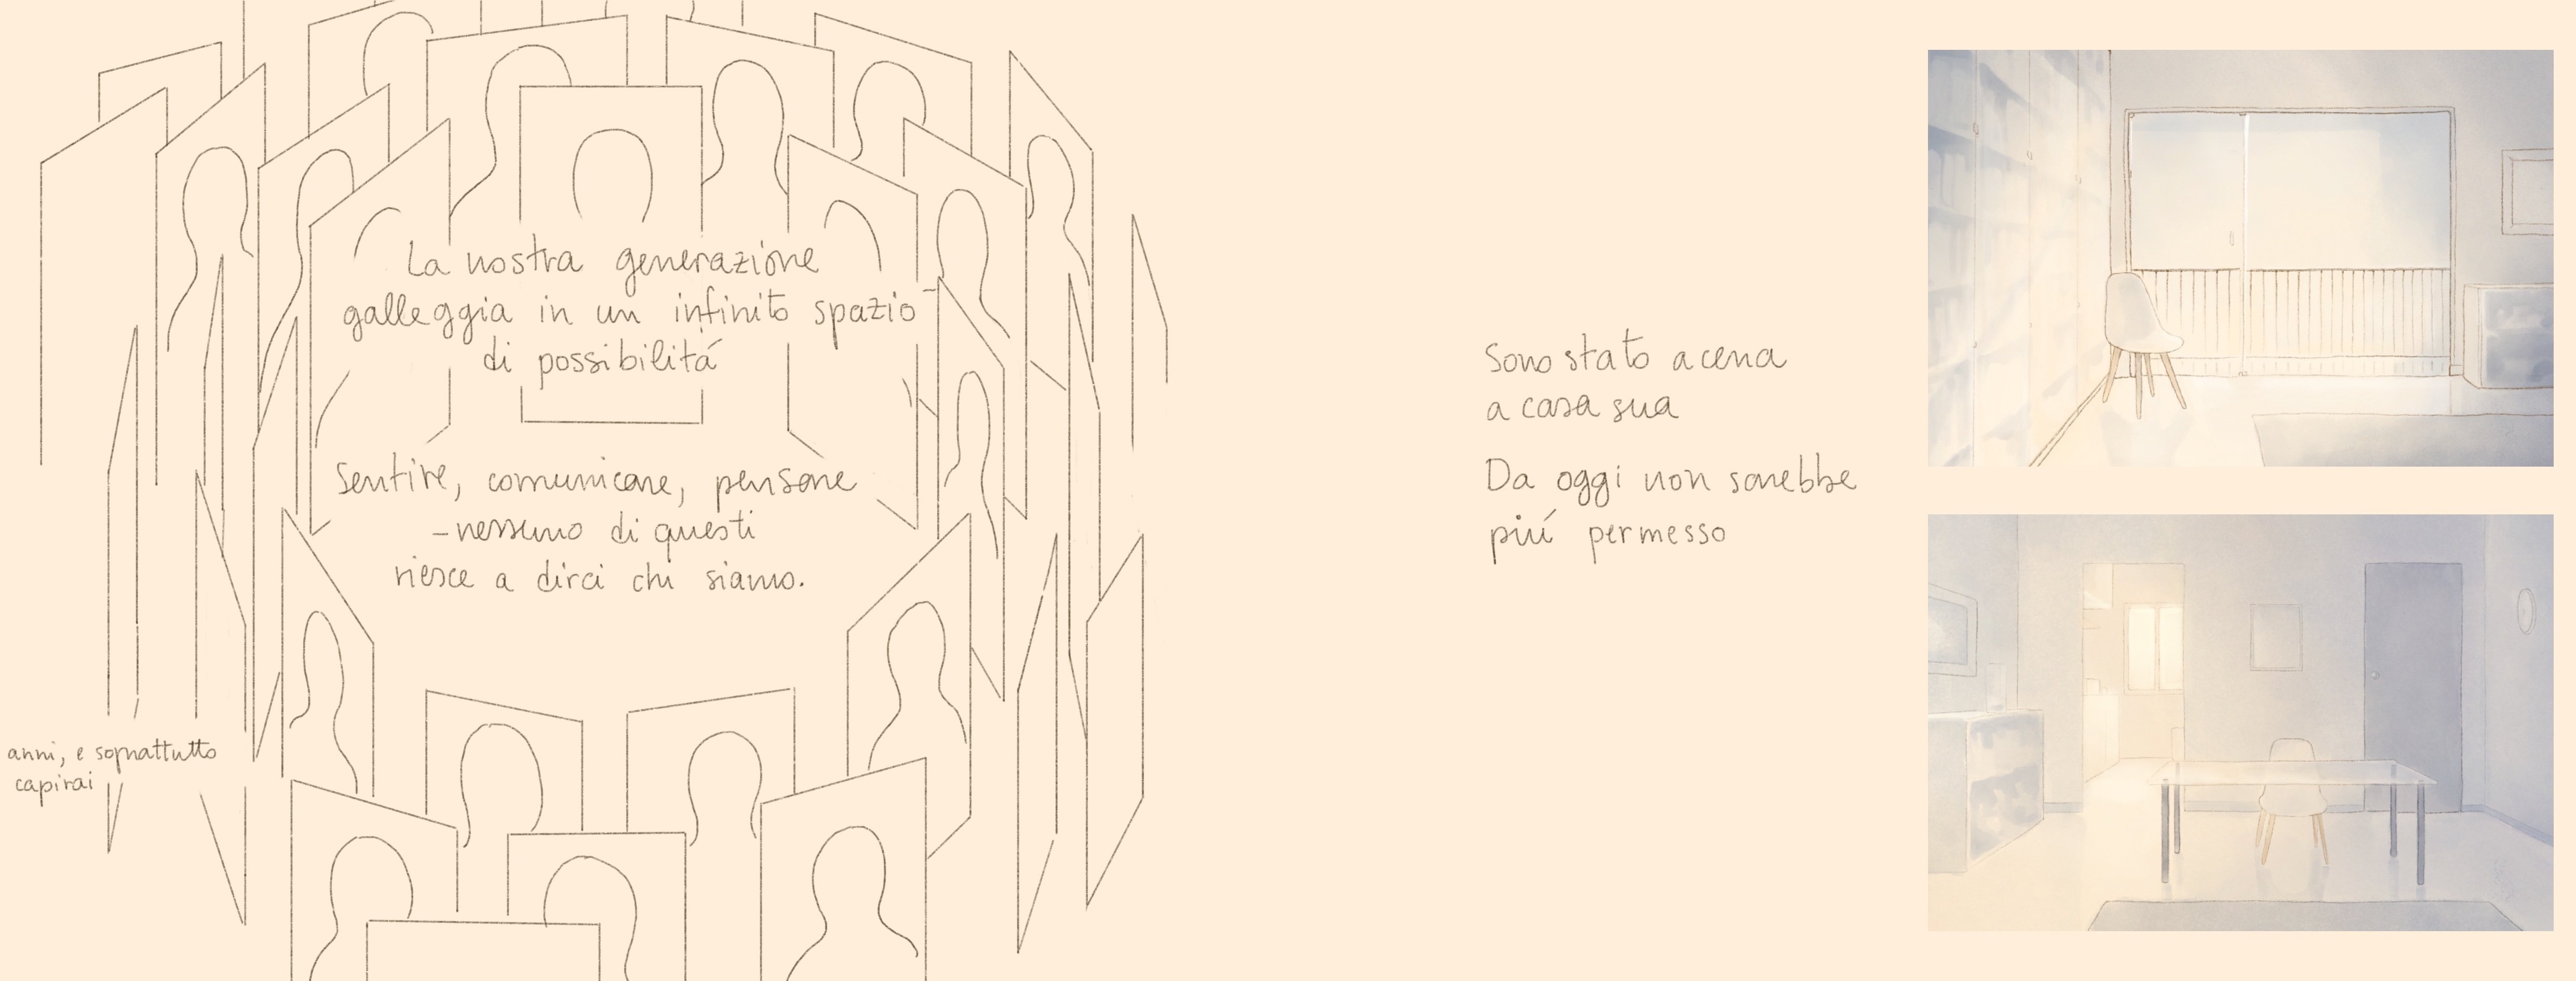 La nostra generazione
galleggia in un infinito spazio
di possibilitá
Sentire, comunicare, pensare
- nessuno di questi
riesce a dirci chi siamo.
anni, e soprattutto
capirai
Sono stato a cena
a casa sua
Da oggi non sarebbe
piú permesso